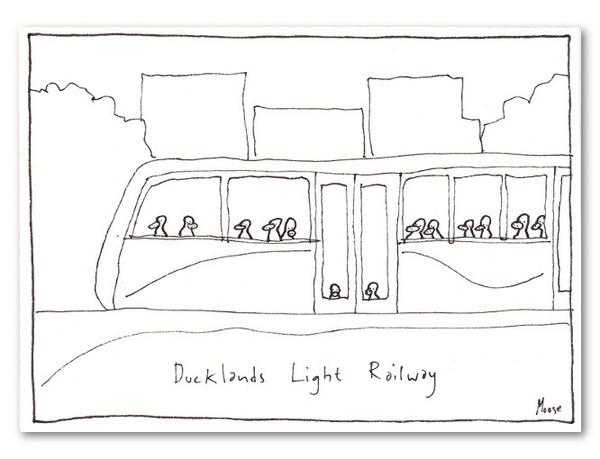 Ducklands Light Railway
Moose